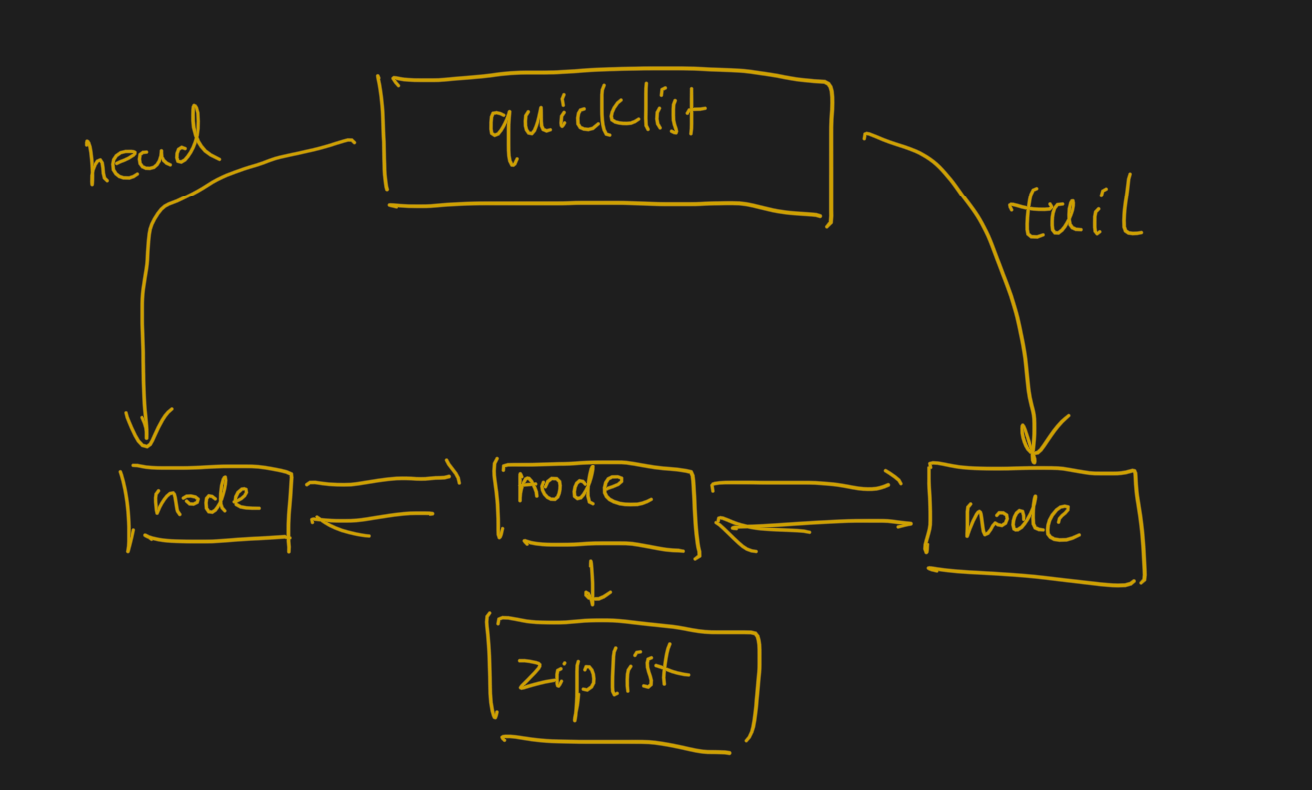 quicklist
head
tail
node
node
node
ziplist